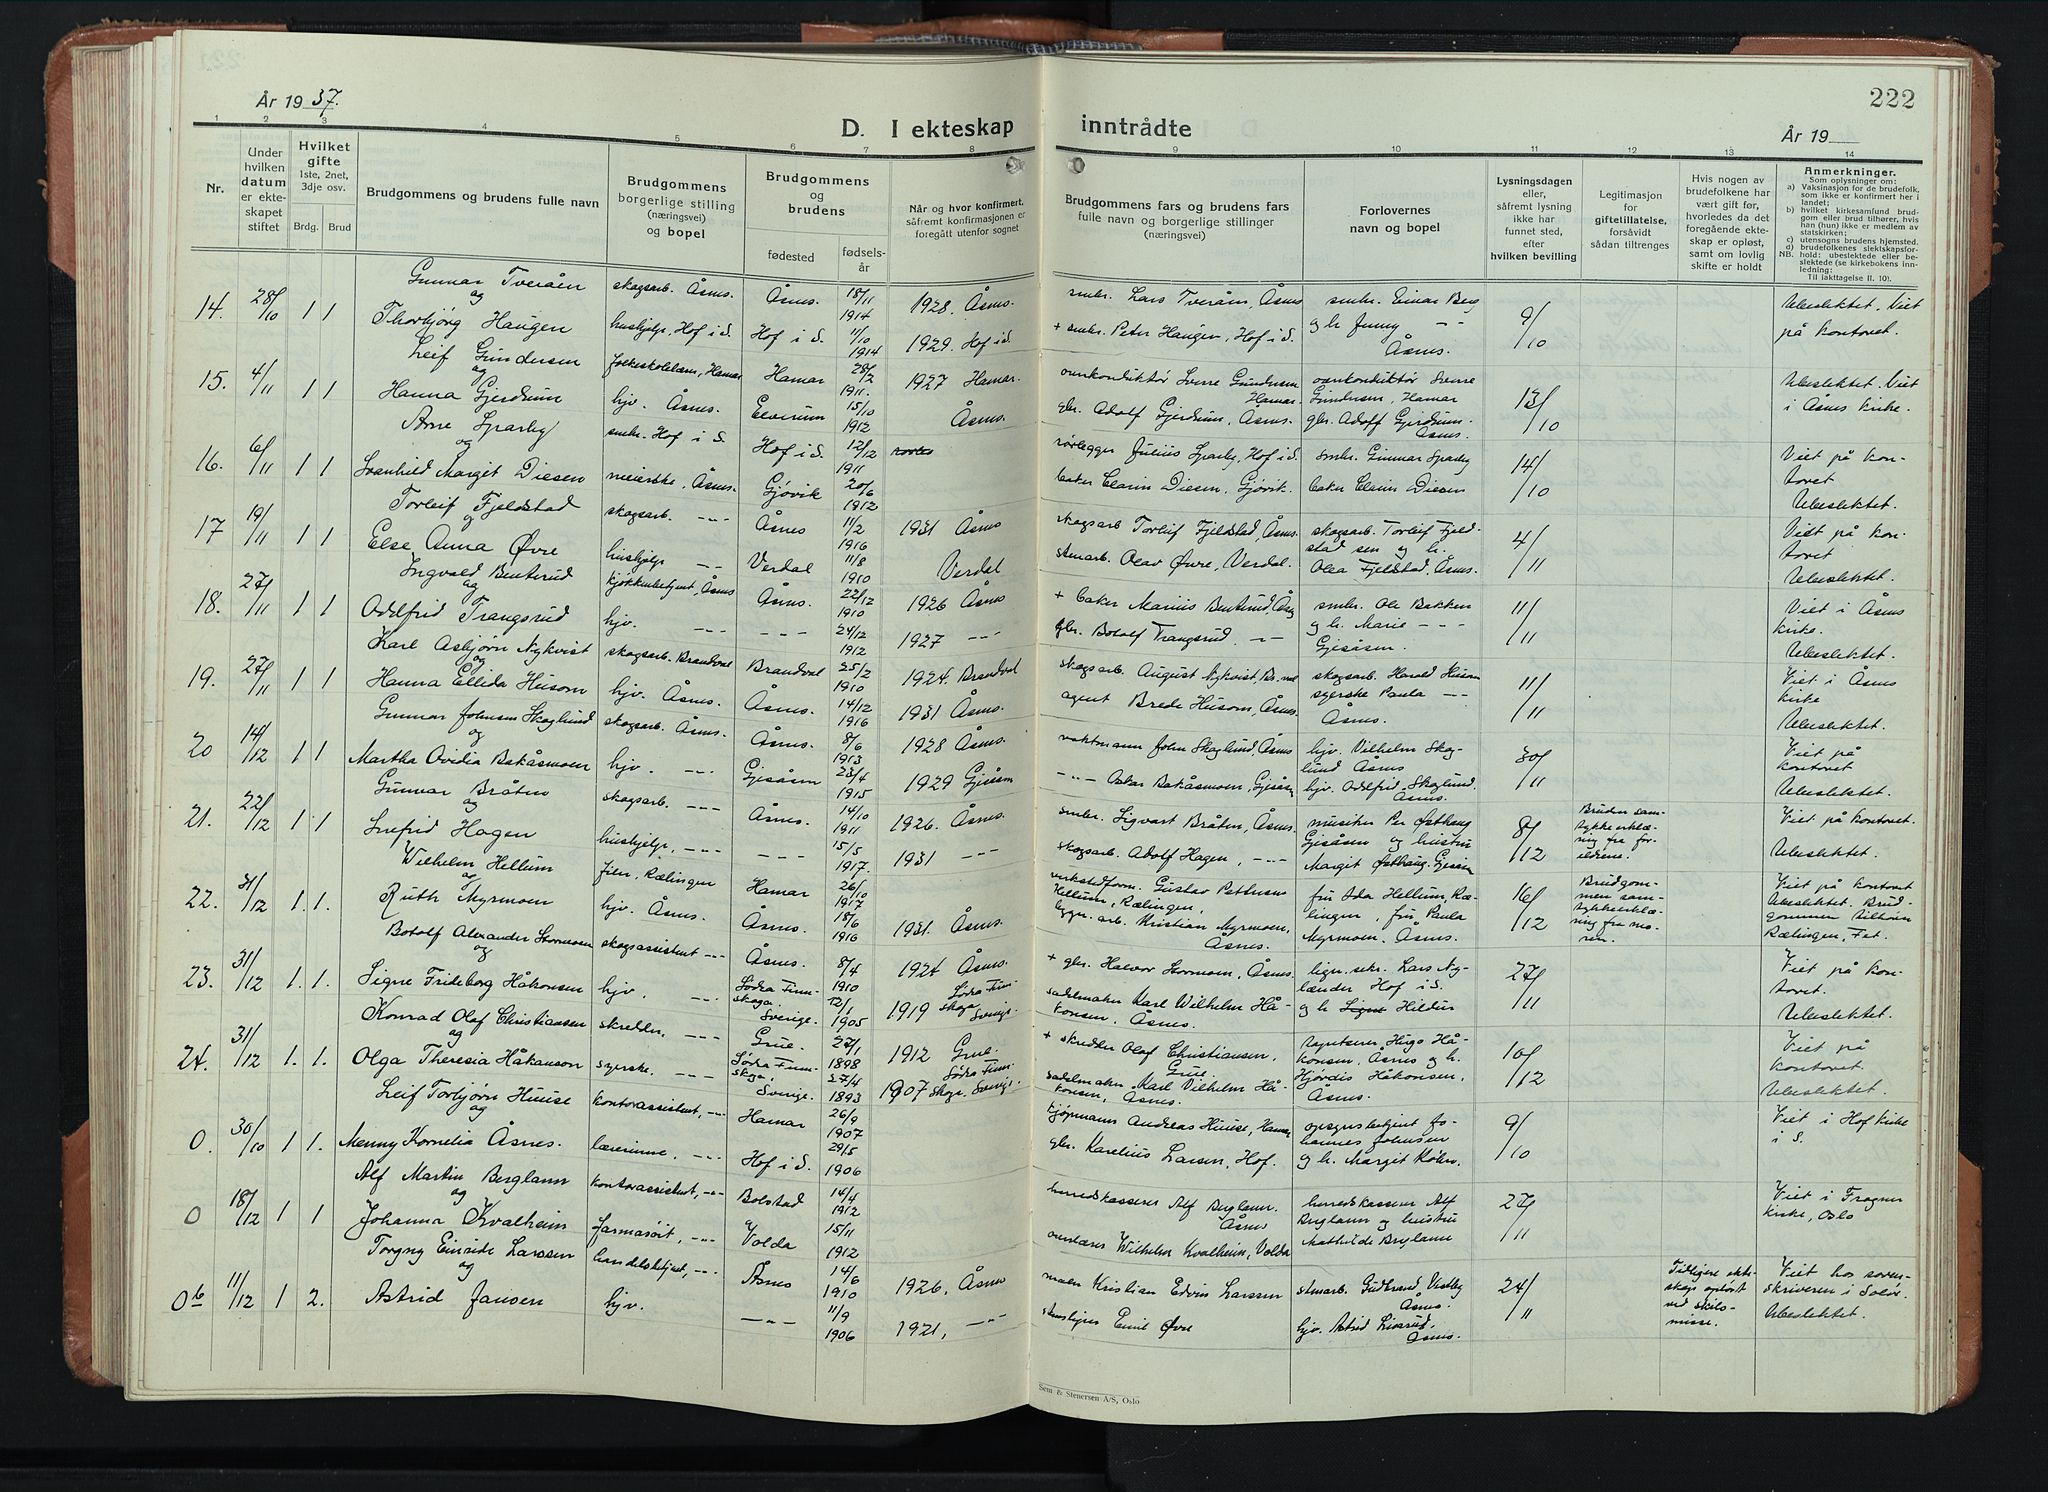 År 1937.
222
D. I ekteskap inntrådte
År 19
1 2 3 4 5 6 7 8 9 10 11 12 13 14
Nr.
Under hvilken datum er ekteskapet stiftet
Hvilket gifte 1ste, 2net, 3dje osv.
Brdg. Brud
Brudgommens og brudens fulle navn
Brudgommens borgerlige stilling (næringsvei) og bopel
Brudgommens og brudens
fødested
fødselsår
Når og hvor konfirmert, såfremt konfirmasjonen er foregått utenfor sognet
Brudgommens fars og brudens fars fulle navn og borgerlige stillinger (næringsvei)
Forlovernes navn og bopel
Lysningsdagen eller, såfremt lysning ikke har funnet sted, efter hvilken bevilling
Legitimasjon for giftetillatelse, forsåvidt sådan tiltrenges
Hvis nogen av brudefolkene har vært gift før, hvorledes da det foregående ekteskap er opløst, samt om lovlig skifte er holdt
Anmerkninger.
Som oplysninger om:
a) Vaksinasjon for de brudefolk, som ikke er konfirmert her i landet;
b) hvilket kirkesamfund brudgom eller brud tilhører, hvis han (hun) ikke er medlem av statskirken;
c) utensogns brudens hjemsted.
d) brudefolkenes slektskapsforhold: ubeslektede eller beslektede (se kirkebokens innledning:
NB. Til iakttagelse II. 10).
14. 28/10 1 1 Gunnar Tveråen skogsarb. Åsnes. Åsnes. 18/11 1914 1928. Åsnes. smbr. Lars Tveråen, Åsnes smbr. Einar Berg 9/10 Ubeslektet. Viet
og
Thorbjørg Haugen hushjelp, Hof i S. Hof i S. 11/10 1914 1929. Hof i S. + smbr. Peter Haugen, Hof i S. og h. Jenny -"- Åsnes. på kontoret.
15. 4/11 1 1 Leif Gundersen folkeskolelærer, Hamar Hamar 28/2 1911. 1927 Hamar. overkonduktør Sverre Gundersen Hamar. overkonduktør Sverre Gundersen, Hamar 13/10 Ubeslektet. Viet
og
Hanna Gjerdrum hjv. Åsnes. Elverum 15/10 1912 Åsnes. gbr. Adolf Gjerdrum, Åsnes. gbr. Adolf Gjerdrum. Åsnes. i Åsnes kirke.
16. 6/11 1 1 Arne Sparby smbr. Hof i S. Hof i S. 12/12 1911 rørlegger Julius Sparby, Hof i S. smbr. Gunnar Sparby 14/10 Viet på kontoret
og
Svanhild Margit Diesen meierske, Åsnes. Gjøvik 20/6 1912 baker Clarin Diesen, Gjøvik. baker Clarin Diesen Ubeslektet.
17 19/11 1 1 Torleif Fjeldstad skogsarb. -"- Åsnes 11/2 1916 1931 Åsnes skogsarb Torleif Fjeldstad, Åsnes. skogsarb. Torleif Fjeldstad sen og h. 4/11 Viet på kontoret
og
Else Anna Øvre hushjelp -"- Verdal 11/8 1910 Verdal stenarb. Olav Øvre, Verdal. Olea Fjeldstad, Åsnes. Ubeslektet.
18. 27/11 1 1 Ingvald Benterud kjøkkenbetjent, Åsnes Åsnes. 22/12 1910 1926 Åsnes + baker Marius Benterud, Åsnes smbr. Ole Bakken 11/11 Viet i Åsnes
og
Odlfrid Trangsrud hjv. -"- -"- 24/12 1912 1927 -"- gbr. Botolf Trangsrud -"- og h. Marie -"- Gjesåsen. kirke. Ubeslektet.
19. 27/11 1 1 Karl Asbjørn Nykvist skogsarb. Brandval Brandval 25/2 1910 1924. Brandval skogsarb. August Nykvist, Br.val skogsarb. Harald Husom 11/11 Viet i Åsnes
og
Hanna Ellida Husom hjv. Åsnes. Åsnes. 14/12 1916 1931 Åsnes. agent Brede Husom, Åsnes. syerske Paula -"- Åsnes. kirke Ubeslektet.
20 14/12 1 1 Gunnar Johnsen Skoglund skogsarb. Åsnes. Åsnes. 8/6 1913 1928 Åsnes. vaktmann John Skoglund, Åsnes hjv. Vilhelm Skoglund Åsnes 30/11 Viet på kontoret
og
Martha Ovidia Bakåsmoen hjv. -"- Gjesåsen 23/4 1915 1929 Gjesåsen -"- Oskar Bakåsmoen, Gjesåsen hjv. Odlfrid Skoglund. Åsnes. Ubeslektet.
21. 22/12 1 1 Gunnar Bråten skogsarb. -"- Åsnes. 14/10 1911 1926. Åsnes. smbr. Sigvart Bråten, Åsnes. musiker Per Østhaug Gjesåsen og hustru 8/12 Bruden samtykkeerklæring fra foreldrene. Viet på kontoret.
og
Snefrid Hagen hushjelp, -"- -"- 15/5 1917. 1931 -"- skogsarb. Adolf Hagen, -"- Margit Østhaug, Gjesåsen Ubeslektet.
22. 31/12 1. 1. Wilhelm Hellum filer, Rælingen Hamar 26/10 1917 verkstedform. Gustav Pettersen Hellum, Rælingen, fru Ida Hellum, Rælingen, fru Paula 16/12 Brudgommen samtykkeerklæring fra moren. Viet på kontoret Ubeslektet. Brudgommen tilhører Rælingen, Fet.
og
Ruth Myrmoen hjv. Åsnes. Åsnes. 18/6 1916 1931. Åsnes. bygn. arb. Kristian Myrmoen, Åsnes. Myrmoen. Åsnes.
23. 31/12 1. 1. Botolf Alexander Stormoen skogsassistent -"- Åsnes. 8/4 1910 1924 Åsnes. + gbr. Halvor Stormoen, Åsnes. lign. sekr. Lars Nylænder Hof i S. 27/11 Viet på kontoret.
og
Signe Frideborg Håkonsen hjv. -"- Södra Finnskoga Sverige. 12/1 1905 1919 Södra Finnskoga Sverige. sadelmaker Karl Wilhelm Håkonsen, Åsnes. og h. Signe Hildur Ubeslektet.
24. 31/12 1. 1. Konrad Olaf Christiansen skredder, -"- Grue. 27/1 1898 1912 Grue. + skredder Olaf Christiansen, Grue. Hugo Håkonsen, Åsnes og h. 10/12 Viet på kontoret.
og
Olga Theresia Håkanson syerske. -"- Södra Finnskoga. Sverige. 27/4 1893 1907 Södra Finnskog. Sverige. sadelmaker Karl Vilhelm Håkonsen, Åsnes. Hjørdis Håkonsen, Åsnes. Ubeslektet
0. 30/10 1 1. Leif Torbjørn Huuse kontorassistent, -"- Hamar 26/9 1907 kjøpmann Andreas Huuse, Hamar opsynsbetjent Johannes Johnsen 9/10 Viet i Hof kirke
og
Menny Kornelia Åsnes. lærerinne, -"- Hof i S. 29/5 1906 gbr. Karelius Larsen, Hof. og h. Margit i S.
0 18/12 1 1 Alf Martin Berglann kontorassistent, -"- Bolstad 14/4 1912 herredskasserer Alf Berglann. Åsnes herredskasserer Alf Berglann og hustru 27/11 Viet i Frogner
og
Johanna Kvalheim farmasøit, -"- Volda 15/11 1912 overlærer Wilhelm Kvalheim, Volda Mathilde Berglann kirke, Oslo
0b 11/12 1 2. Torgny Einride Larssen handelsbetjent, -"- Åsnes 14/6 1910 1926, Åsnes maler Kristian Edvin Larssen stenarb. Gudbrand Vestby Åsnes. 24/11 Tidligere ekteskap opløst ved skilsmisse. Viet hos sorenskriveren i Solør.
og
Astrid Jansen hjv. -"- 11/9 1906 1921, -"- Emil Øvre hjv. Astrid Åsnes. Ubeslektet.
Sem & Stenersen A/S, Oslo